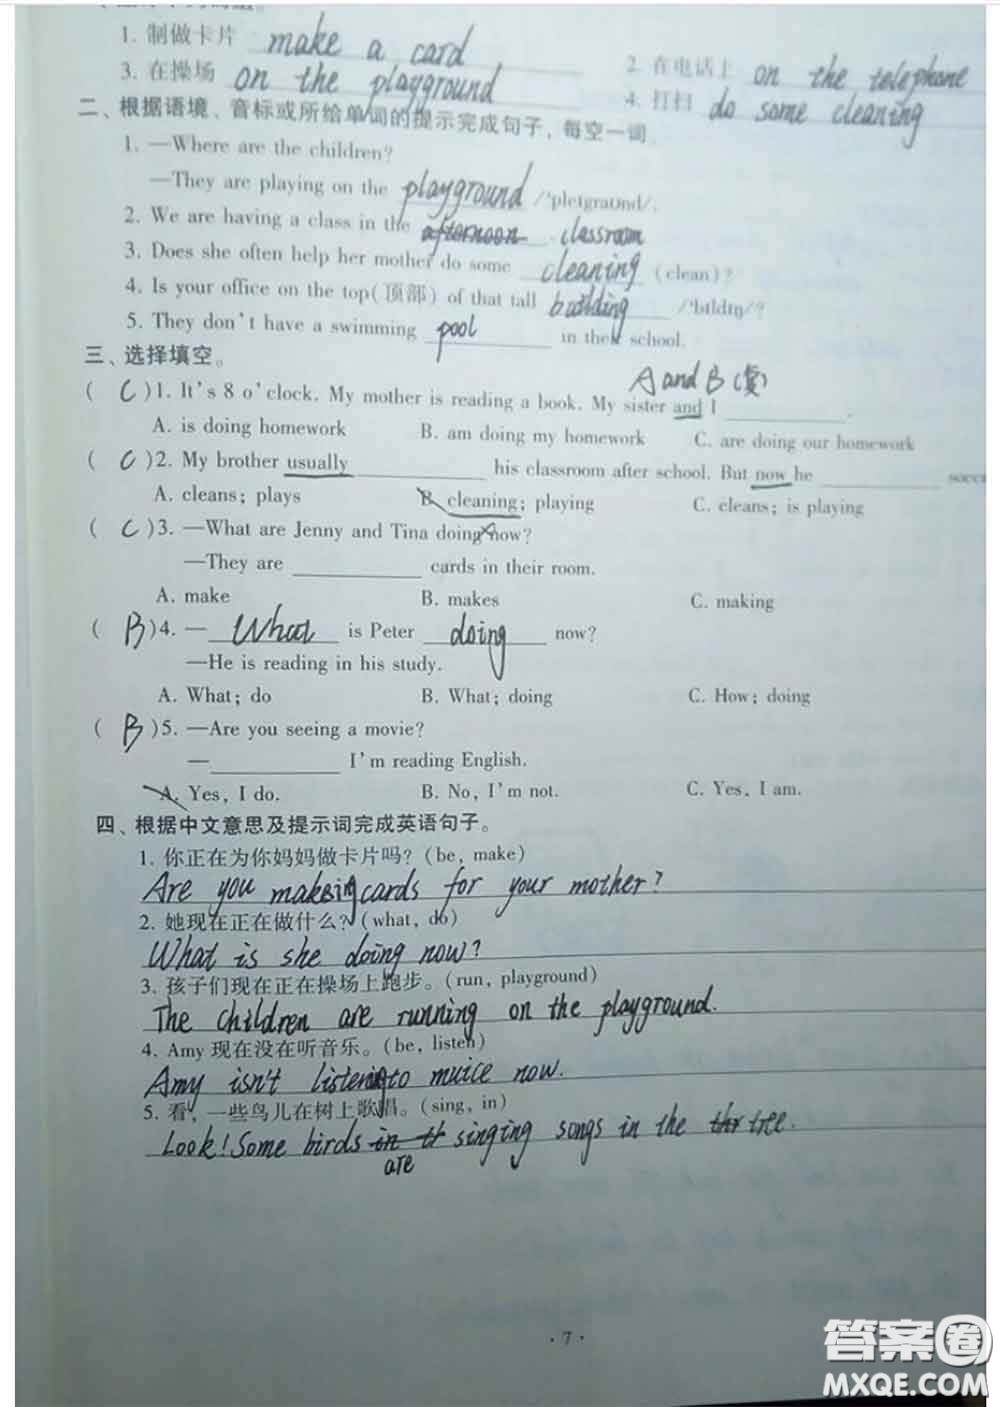 1. 制做卡片 make a card 2. 在电话上 on the telephone
3. 在操场 on the playground 4. 打扫 do some cleaning
二、根据语境、音标或所给单词的提示完成句子，每空一词。
1. —Where are the children?
—They are playing on the playground /'pleɪgraʊnd/.
2. We are having a class in the afternoon classroom
3. Does she often help her mother do some cleaning (clean)?
4. Is your office on the top(顶部) of that tall building /'bɪldɪŋ/?
5. They don't have a swimming pool in their school.
三、选择填空。
A and B (复)
( C )1. It's 8 o'clock. My mother is reading a book. My sister and I ________.
A. is doing homework B. am doing my homework C. are doing our homework
( C )2. My brother usually ________ his classroom after school. But now he ________
A. cleans; plays B. cleaning; playing C. cleans; is playing
( C )3. —What are Jenny and Tina doing now?
—They are ________ cards in their room.
A. make B. makes C. making
( B )4. — What is Peter doing now?
—He is reading in his study.
A. What; do B. What; doing C. How; doing
( B )5. —Are you seeing a movie?
—________ I'm reading English.
A. Yes, I do. B. No, I'm not. C. Yes, I am.
四、根据中文意思及提示词完成英语句子。
1. 你正在为你妈妈做卡片吗? (be, make)
Are you making cards for your mother?
2. 她现在正在做什么? (what, do)
What is she doing now?
3. 孩子们现在正在操场上跑步。(run, playground)
The children are running on the playground.
4. Amy 现在没在听音乐。(be, listen)
Amy isn't listening to muice now.
5. 看，一些鸟儿在树上歌唱。(sing, in)
Look! Some birds in th singing songs in the thr tree.
are
· 7 ·
答案圈
MXQE.COM